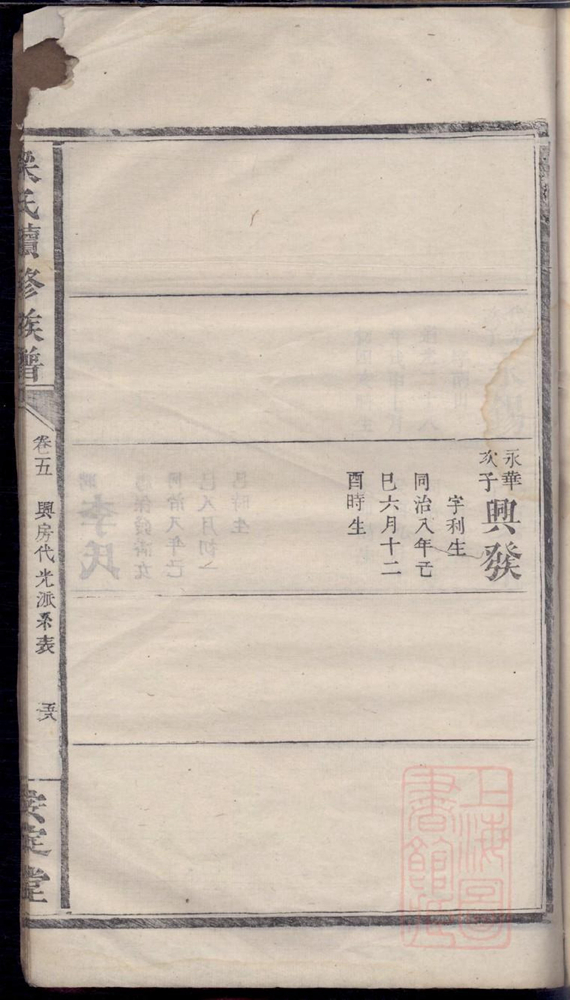 永華
次子
興發
字利生
同治八年己
巳六月十二
酉時生
梁氏續修族譜
卷五 興房代光派系表
安定堂
上海圖
書館藏